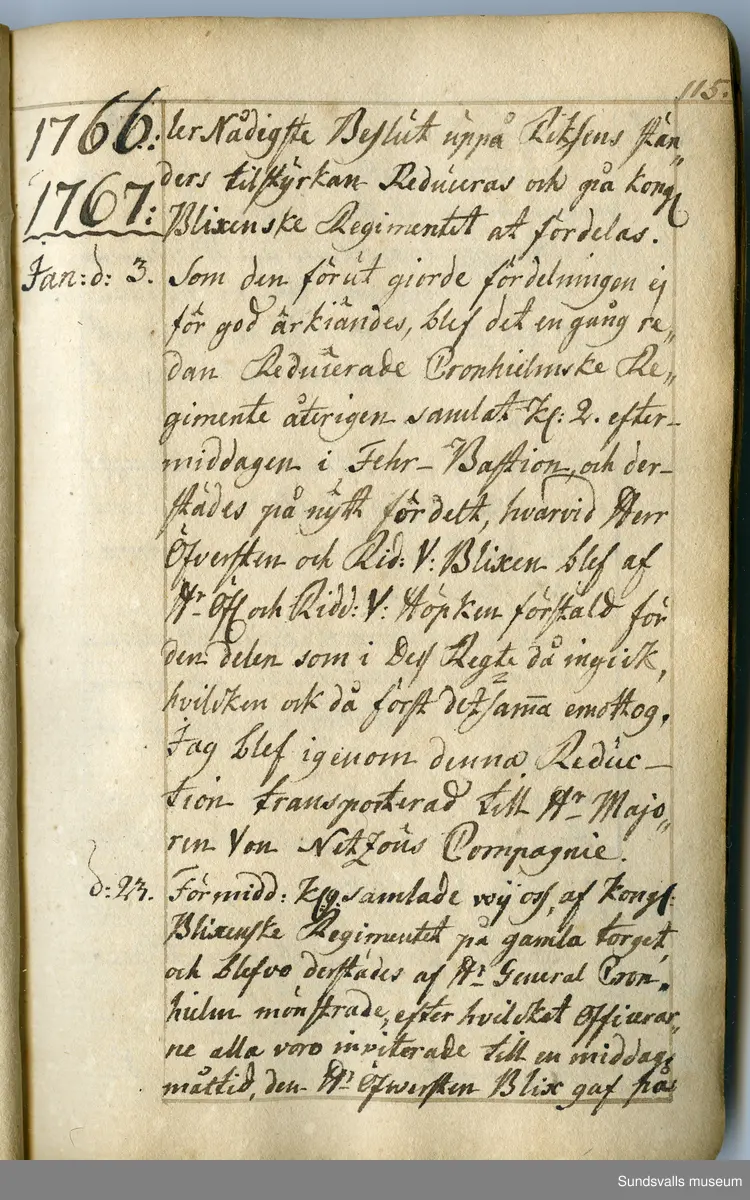 115.
1766.: ler Nådigste Beslut uppå Riksens stän„
ders tilstyrkan Reduceras och på kongl
1767: Blixenske Regimentet at fördelas.
Jan: d: 3. Som den förut giorde fördelningen ej
för god ärkiändes, blef det en gång re„
dan Reducerade Cronhielmske Re„
gimente återigen samlat Kl: 2. efter-
middagen i Fehr-Bastion, och der-
städes på nytt fördelt, hvarvid Herr
Öfversten och Rid: V: Blixen blef af
Hr Öfl och Ridd: V: Höpken förstäld för
den delen som i Dess Regte då ingick,
hvilcken ock då först detsamma emottog.
Jag blef igenom denna Reduc-
tion transporterad till Hr Majo„
ren Von Netzous Compagnie.
d: 23. Förmidd: Kl: 9. samlade wij oss, af Kongl:
Blixenske Regimentet på gamla torget,
och blefvo derstädes af Hr General Cron„
hielm mönstrade, efter hvilcket Officerar„
ne alla voro inviterade till en middags
måltid, den Hr Öfwersten Blix gaf på
Sundsvalls museum